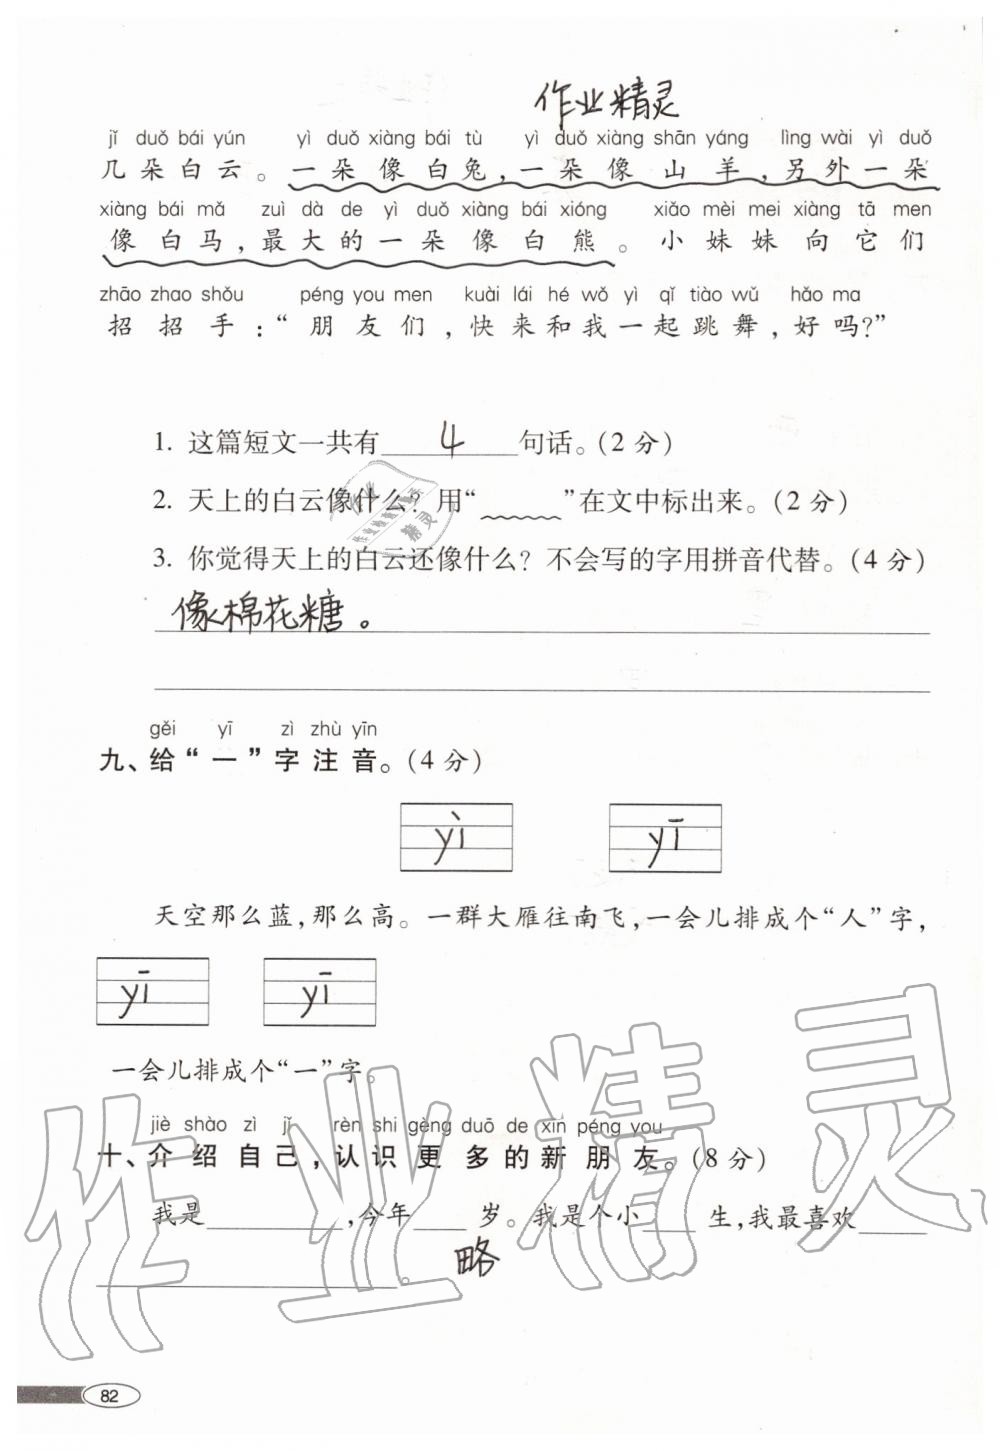 作业精灵
jǐ duǒ bái yún yì duǒ xiàng bái tù yì duǒ xiàng shān yáng lìng wài yì duǒ
几朵白云。一朵像白兔,一朵像山羊,另外一朵
xiàng bái mǎ zuì dà de yì duǒ xiàng bái xióng xiǎo mèi mei xiàng tā men
像白马,最大的一朵像白熊。小妹妹向它们
zhāo zhao shǒu péng you men kuài lái hé wǒ yì qǐ tiào wǔ hǎo ma
招招手:“朋友们,快来和我一起跳舞,好吗?”
1. 这篇短文一共有 4 句话。(2分)
2. 天上的白云像什么?用“﹏﹏”在文中标出来。(2分)
3. 你觉得天上的白云还像什么?不会写的字用拼音代替。(4分)
像棉花糖。
gěi yī zì zhù yīn
九、给“一”字注音。(4分)
yì yī
天空那么蓝,那么高。一群大雁往南飞,一会儿排成个“人”字,
yī yī
一会儿排成个“一”字。
jiè shào zì jǐ rèn shi gèng duō de xīn péng you
十、介绍自己,认识更多的新朋友。(8分)
我是______,今年____岁。我是个小____生,我最喜欢____
____________。 略
作业精灵
82